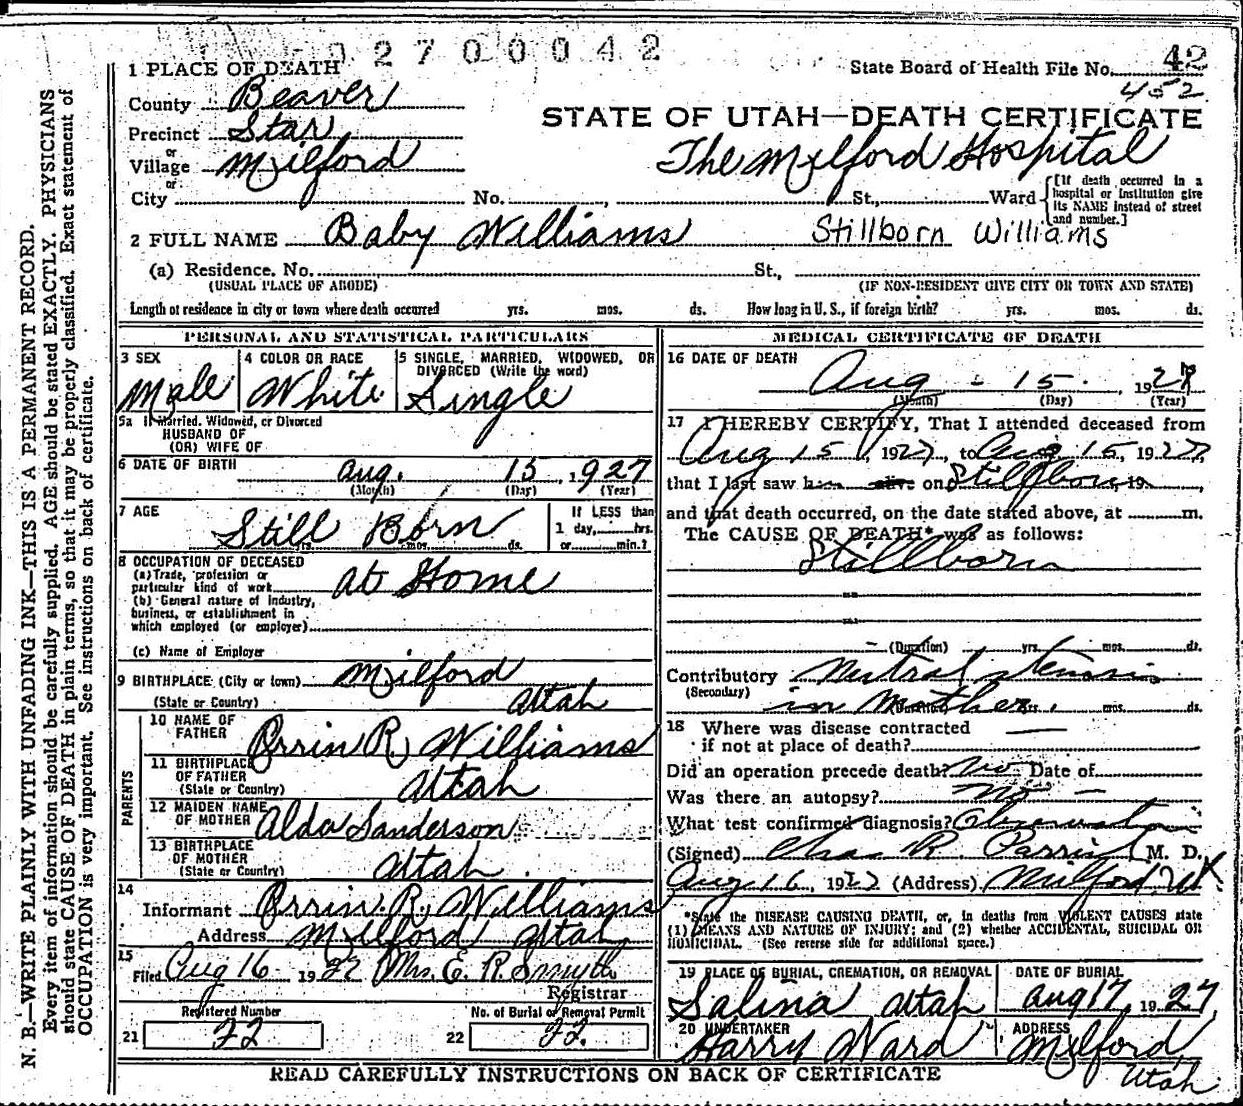 2700042
42
1 PLACE OF DEATH
State Board of Health File No.
452
County Beaver
STATE OF UTAH—DEATH CERTIFICATE
Precinct Star
or
Village Milford
The Milford Hospital
or
City No. , St., Ward
[If death occurred in a hospital or institution give its NAME instead of street and number.]
2 FULL NAME Baby Williams Stillborn Williams
(a) Residence. No. St.,
(USUAL PLACE OF ABODE) (IF NON-RESIDENT GIVE CITY OR TOWN AND STATE)
Length of residence in city or town where death occurred yrs. mos. ds. How long in U. S., if foreign birth? yrs. mos. ds.
PERSONAL AND STATISTICAL PARTICULARS
3 SEX
Male
4 COLOR OR RACE
White
5 SINGLE, MARRIED, WIDOWED, OR
DIVORCED (Write the word)
Single
5a If Married, Widowed, or Divorced
HUSBAND OF
(OR) WIFE OF
6 DATE OF BIRTH
Aug. 15, 1927
(Month) (Day) (Year)
7 AGE
Still Born
yrs. mos. ds.
If LESS than
1 day, hrs.
or min.?
8 OCCUPATION OF DECEASED
(a) Trade, profession or
particular kind of work At Home
(b) General nature of Industry,
business, or establishment in
which employed (or employer)
(c) Name of Employer
9 BIRTHPLACE (City or town) Milford
(State or Country) Utah
PARENTS
10 NAME OF
FATHER Orrin R. Williams
11 BIRTHPLACE
OF FATHER
(State or Country) Utah
12 MAIDEN NAME
OF MOTHER Alda Sanderson
13 BIRTHPLACE
OF MOTHER
(State or Country) Utah.
14
Informant Orrin. R. Williams
Address Milford Utah
15
Filed Aug 16 1927 Mrs. E. R. Smyth
Registrar
Registered Number
21 22
No. of Burial or Removal Permit
22 22.
MEDICAL CERTIFICATE OF DEATH
16 DATE OF DEATH
Aug - 15. , 1927
(Month) (Day) (Year)
17 I HEREBY CERTIFY, That I attended deceased from
Aug 15, 1927, to Aug 15, 1927,
that I last saw h alive on Stillborn, 19 ,
and that death occurred, on the date stated above, at m.
The CAUSE OF DEATH* was as follows:
Stillborn
(Duration) yrs. mos. ds.
Contributory Mitral stenosis
(Secondary) in Mother. yrs. mos. ds.
18 Where was disease contracted
if not at place of death?
Did an operation precede death? No Date of
Was there an autopsy? No
What test confirmed diagnosis? Observation
(Signed) Chas R. Parrish M. D.
Aug 16, 1927 (Address) Milford Ut
*State the DISEASE CAUSING DEATH, or, in deaths from VIOLENT CAUSES state
(1) MEANS AND NATURE OF INJURY; and (2) whether ACCIDENTAL, SUICIDAL OR
HOMICIDAL. (See reverse side for additional space.)
19 PLACE OF BURIAL, CREMATION, OR REMOVAL
Salina Utah
DATE OF BURIAL
Aug 17, 1927
20 UNDERTAKER
Harry Ward
ADDRESS
Milford,
Utah
READ CAREFULLY INSTRUCTIONS ON BACK OF CERTIFICATE
N. B.—WRITE PLAINLY WITH UNFADING INK—THIS IS A PERMANENT RECORD.
Every item of information should be carefully supplied. AGE should be stated EXACTLY. PHYSICIANS
should state CAUSE OF DEATH in plain terms, so that it may be properly classified. Exact statement of
OCCUPATION is very important. See instructions on back of certificate.